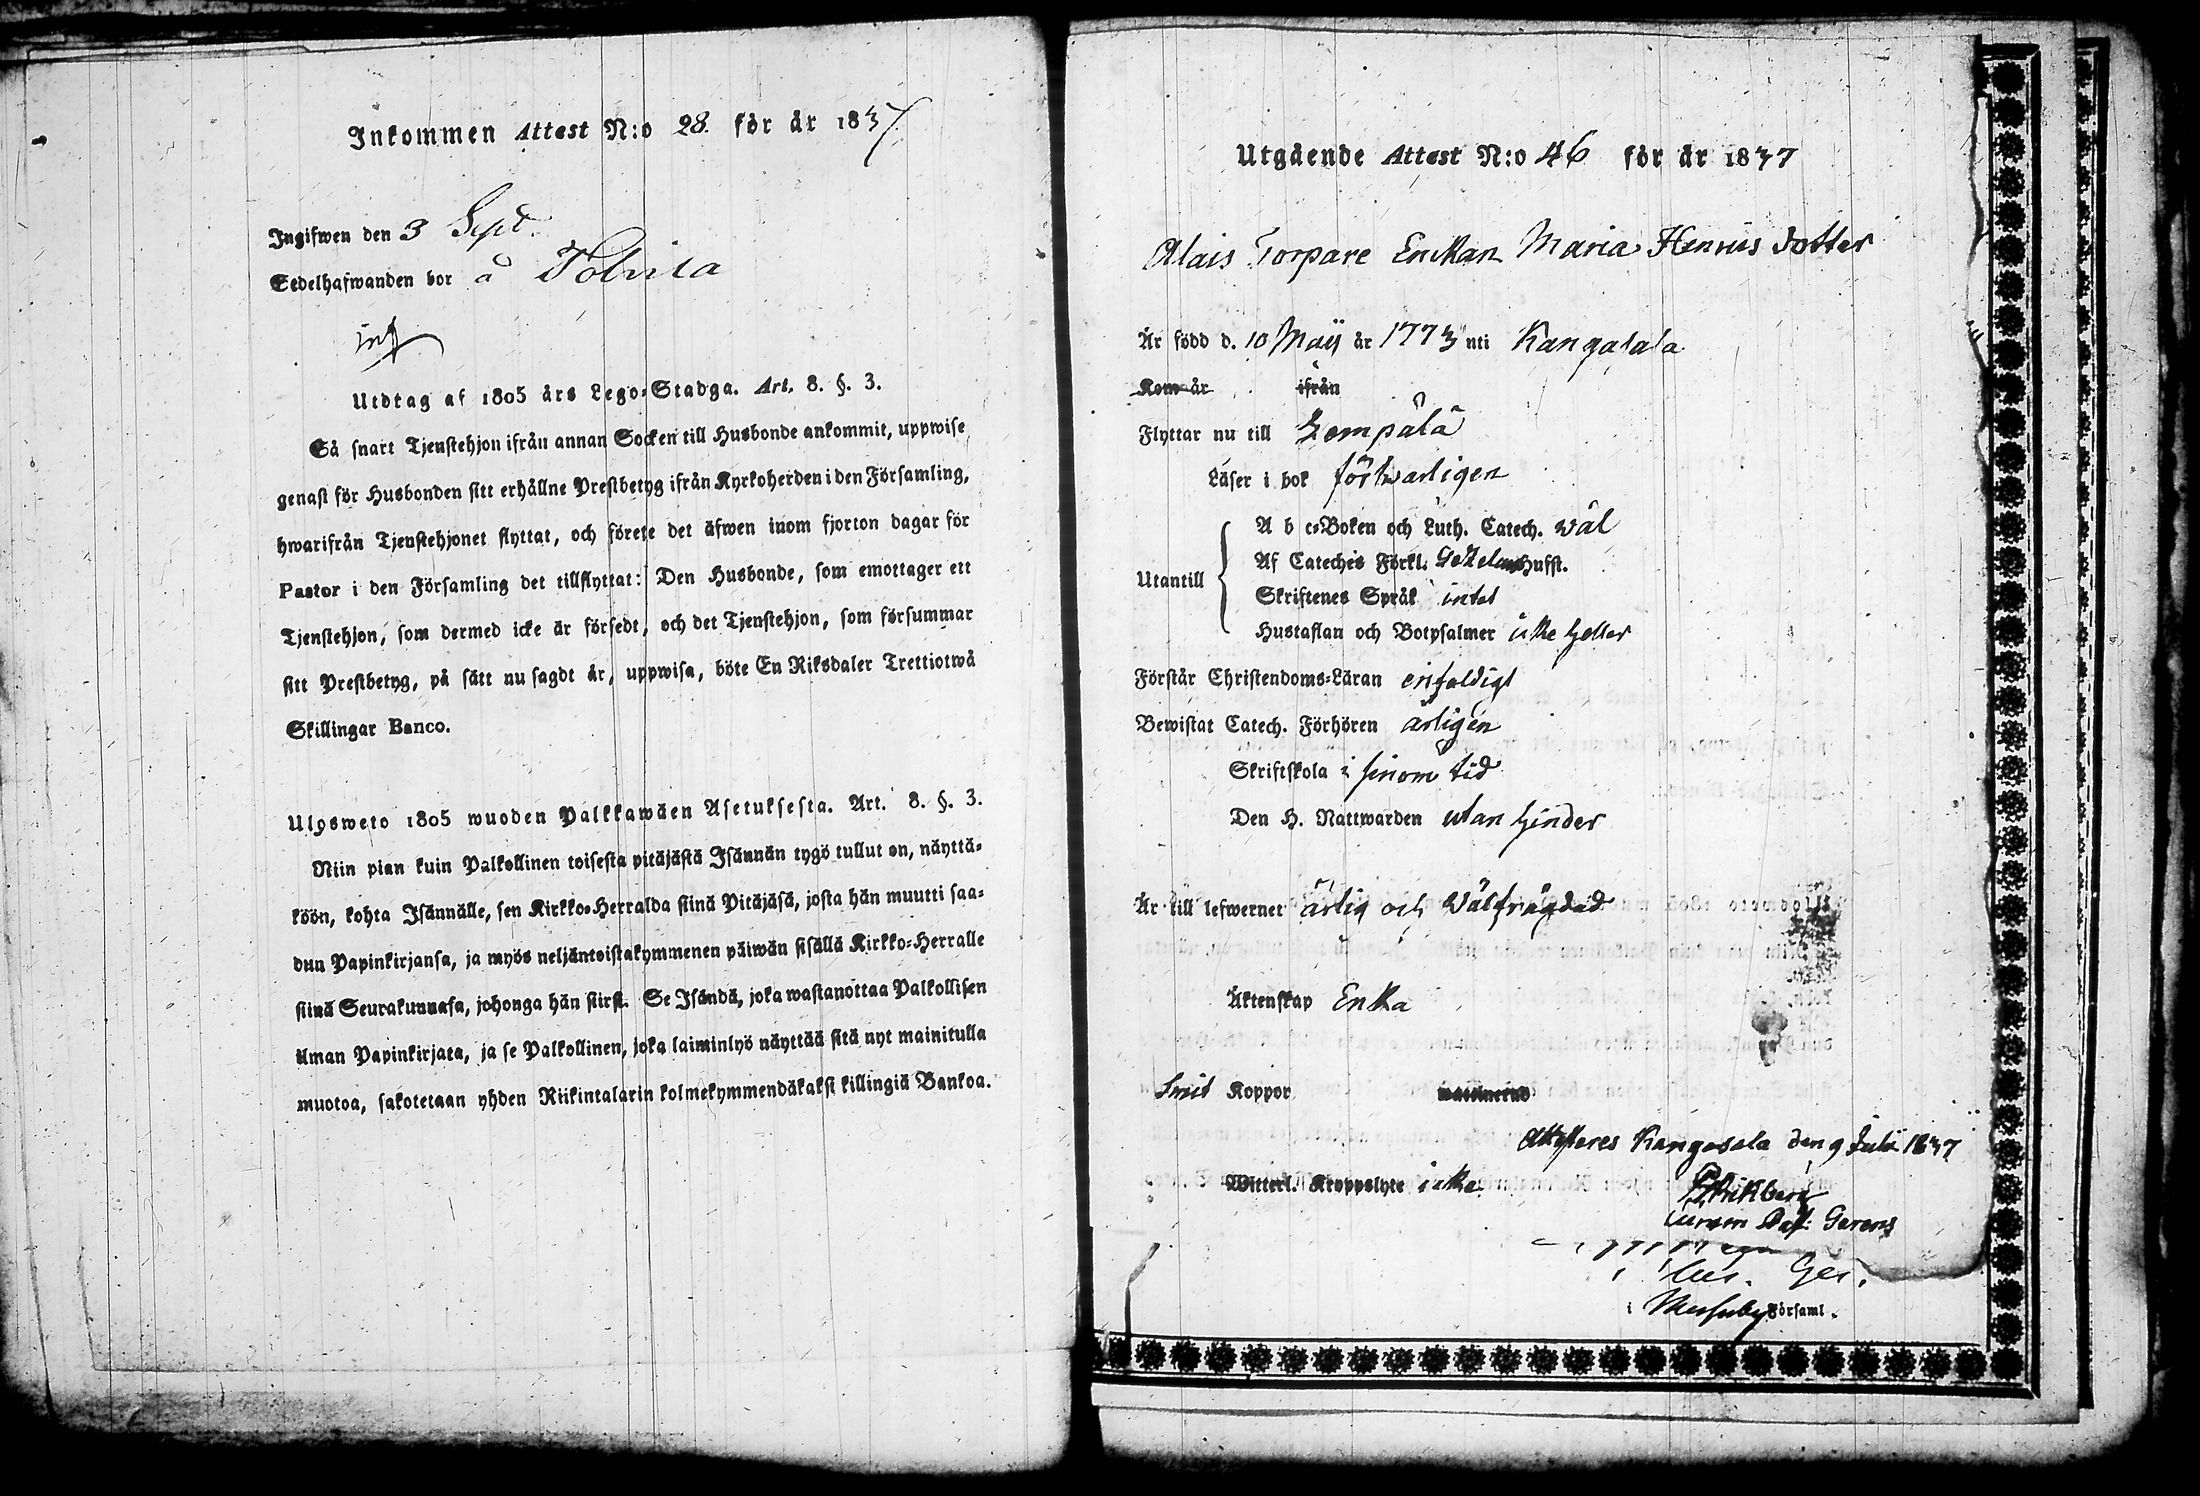 Inkommen Attest N:o 28. för år 1837.
Ingifwen den 3 Sept.
Sedelhafwanden bor å Tolvila
inf
Utdtag af 1805 års Lego-Stadga. Art. 8. §. 3.
Så snart Tjenstehjon ifrån annan Socken till Husbonde ankommit, uppwise
genast för Husbonden sitt erhållne Prestbetyg ifrån Kyrkoherden i den Församling,
hwarifrån Tjenstehjonet flyttat, och förete det äfwen inom fjorton dagar för
Pastor i den Församling det tillflyttat: Den Husbonde, som emottager ett
Tjenstehjon, som dermed icke är försedt, och det Tjenstehjon, som försummar
sitt Prestbetyg, på sätt nu sagdt är, uppwisa, böte En Riksdaler Trettiotwå
Skillingar Banco.
Ulgsweto 1805 wuoden Palkkawäen Asetuksesta. Art. 8. §. 3.
Niin pian kuin Palkollinen toisesta pitäjästä Isännän tygö tullut on, näyttä-
köön, kohta Isännälle, sen Kirkko-Herralda siinä Pitäjäsä, josta hän muutti saa-
dun Papinkirjansa, ja myös neljäntoistakymmenen päiwän sisällä Kirkko-Herralle
siinä Seurakunnasa, johonga hän siirsi. Se Isändä, joka wastanottaa Palkollisen
ilman Papinkirjata, ja se Palkollinen, joka laiminlyö näyttää sitä nyt mainitulla
muotoa, sakotetaan yhden Riikintalarin kolmekymmendäkaksi killingiä Bankoa.
Utgående Attest N:o 46 för år 1837
Alais Torpare Enkan Maria Henriks dotter
Är född d. 10 Maij år 1773 uti Kangasala
Kom år ifrån
Flyttar nu till Lempälä
Läser i bok förswarligen
A b c-Boken och Luth. Catech. wäl
Utantill
Af Cateches Förkl. Gezelius Hufst.
Skriftenes Språk intet
Hustaflan och Botpsalmer icke heller
Förstår Christendoms-Läran enfaldigt
Bewistat Catech. Förhören årligen
Skriftskola i sinom tid
Den H. Nattwarden utan hinder
Är till lefwernet ärlig och wälfrägdad
Äktenskap Enka
haft Koppor
Witterl. Kroppslyte icke
Attesteres Kangasala den 9 Julii 1837
Curam Past. Gerens
i Messuby Församl.